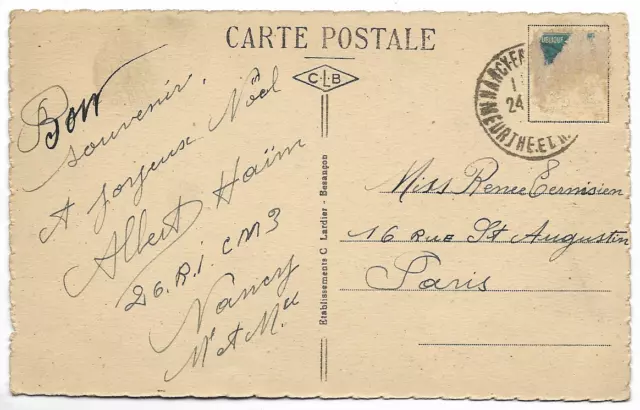 CARTE POSTALE
CLB
Bon
souvenir,
et joyeux Noël
Albert Haïm
26.R.i CM3
Nancy
M et M
Etablissements C Lardier - Besançon
NANCY
24
MEURTHE.ET.M
Miss Renee
16 Rue St Augustin
Paris